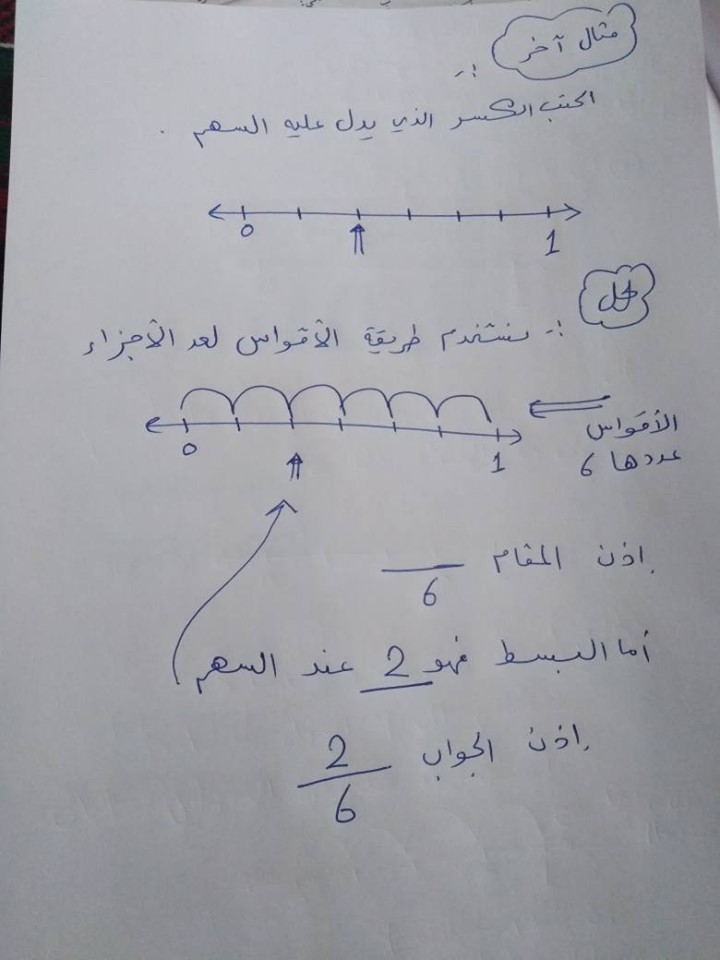 مثال آخر :-
اكتب الكسر الذي يدل عليه السهم .
0 1
الحل :- نستخدم طريقة الأقواس لعد الأجزاء
0 1
الأقواس
عددها 6
إذن المقام
6
أما البسط فهو 2 عند السهم
إذن الجواب 2
6